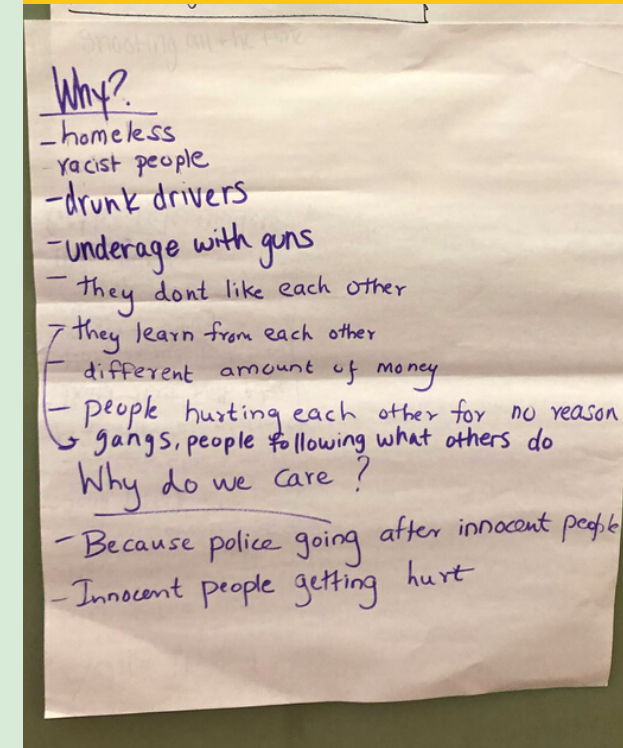 shooting all the time
Why?
- homeless
- racist people
- drunk drivers
- underage with guns
- they dont like each other
- they learn from each other
- different amount of money
- people hurting each other for no reason
gangs, people following what others do
Why do we care?
- Because police going after innocent people
- Innocent people getting hurt